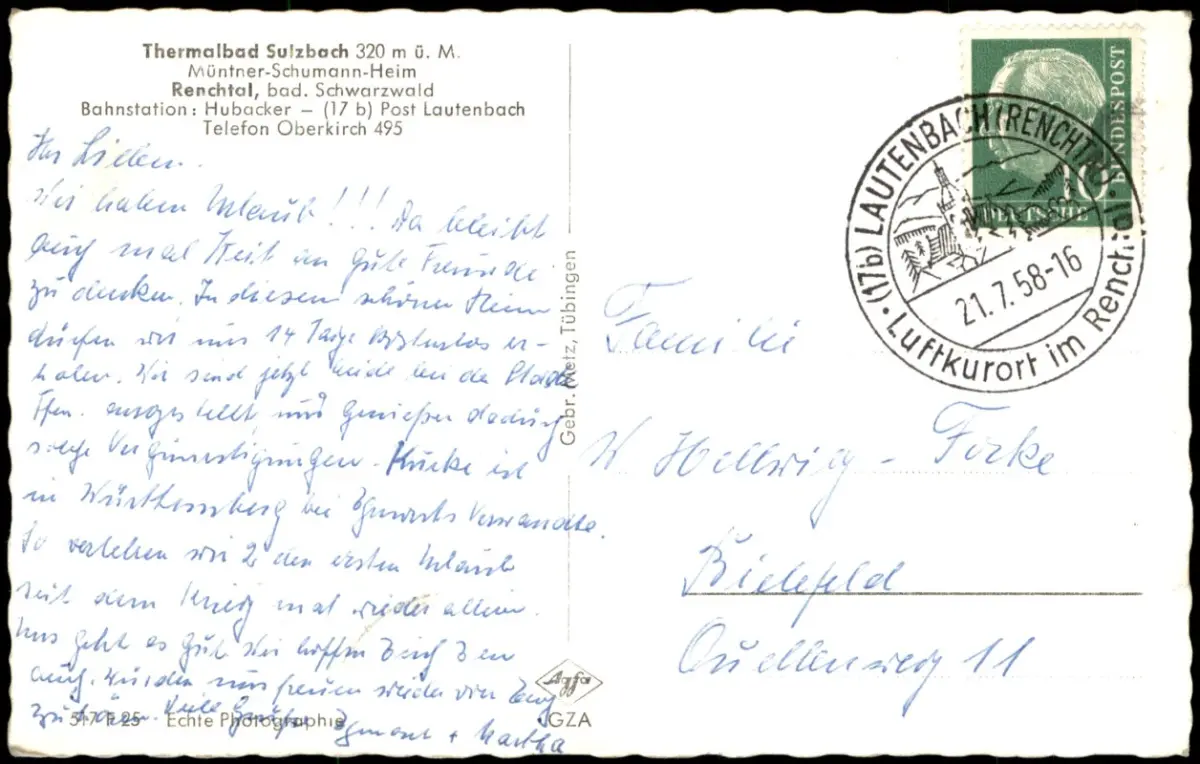 Thermalbad Sulzbach 320 m ü. M.
Müntner-Schumann-Heim
Renchtal, bad. Schwarzwald
Bahnstation: Hubacker – (17 b) Post Lautenbach
Telefon Oberkirch 495
Ihr Lieben.
Wir haben Urlaub!!! Da bleibt
auch mal Zeit an gute Freunde
zu denken. In diesem schönen Heim
dürfen wir uns 14 Tage kostenlos er-
holen. Wir sind jetzt beide bei der
angestellt und genießen dadurch
solche Vergünstigungen. ist
in Württemberg bei Egmonts Verwandte.
So verleben wir 2 den ersten Urlaub
seit dem Krieg mal wieder allein.
Uns geht es gut. Wir hoffen Euch
auch. Würden uns freuen wieder von Euch
zu hören. Viele Grüße Egmont + Martha
517 F 25 Echte Photographie
Gebr. Metz, Tübingen
Agfa
GZA
BUNDESPOST
10
DEUTSCHE
(17b) LAUTENBACH (RENCHTAL)
21.7.58-16
Luftkurort im Renchtal
Familie
W Hellwig - Forke
Bielefeld
Quellenweg 11